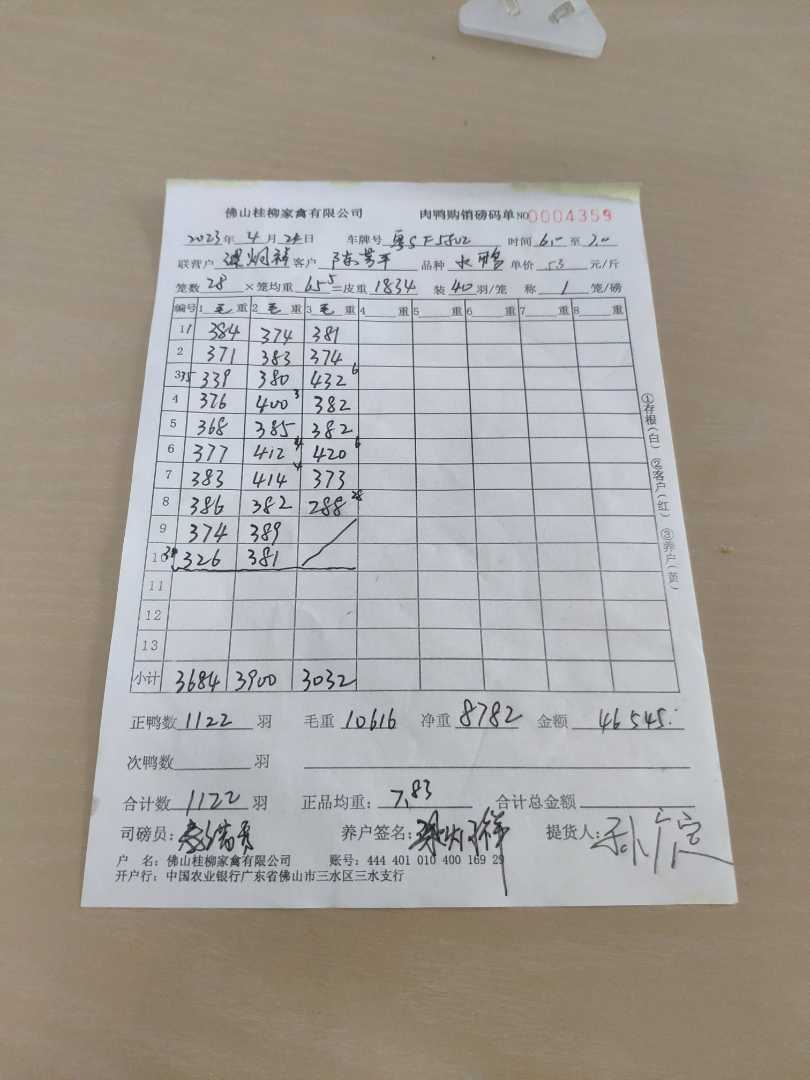 佛山桂柳家禽有限公司 肉鸭购销磅码单 NO 0004359
2023年 4月 24日 车牌号 粤SF5502 时间 6:00 至 7:00
联营户 客户 陈芳平 品种 水鸭 单价 53 元/斤
笼数 28 ×笼均重 65.5 =皮重 1834 装 40 羽/笼 称 1 笼/磅
编号 1 毛 重 2 毛 重 3 毛 重 4 重 5 重 6 重 7 重 8 重
1 384 374 381
2 371 383 374
3 35 339 380 432 6
4 376 400 3 382
5 368 385 382
6 377 412 4 420 6
7 383 414 4 373
8 386 382 288 28
9 374 389
10 34 326 381
11
12
13
小计 3684 3900 3032
①存根(白) ②客户(红) ③养户(黄)
正鸭数 1122 羽 毛重 10616 净重 8782 金额 46545.
次鸭数 羽
合计数 1122 羽 正品均重: 7.83 合计总金额
司磅员: 养户签名: 提货人:
户 名: 佛山桂柳家禽有限公司 账号: 444 401 010 400 169 29
开户行: 中国农业银行广东省佛山市三水区三水支行